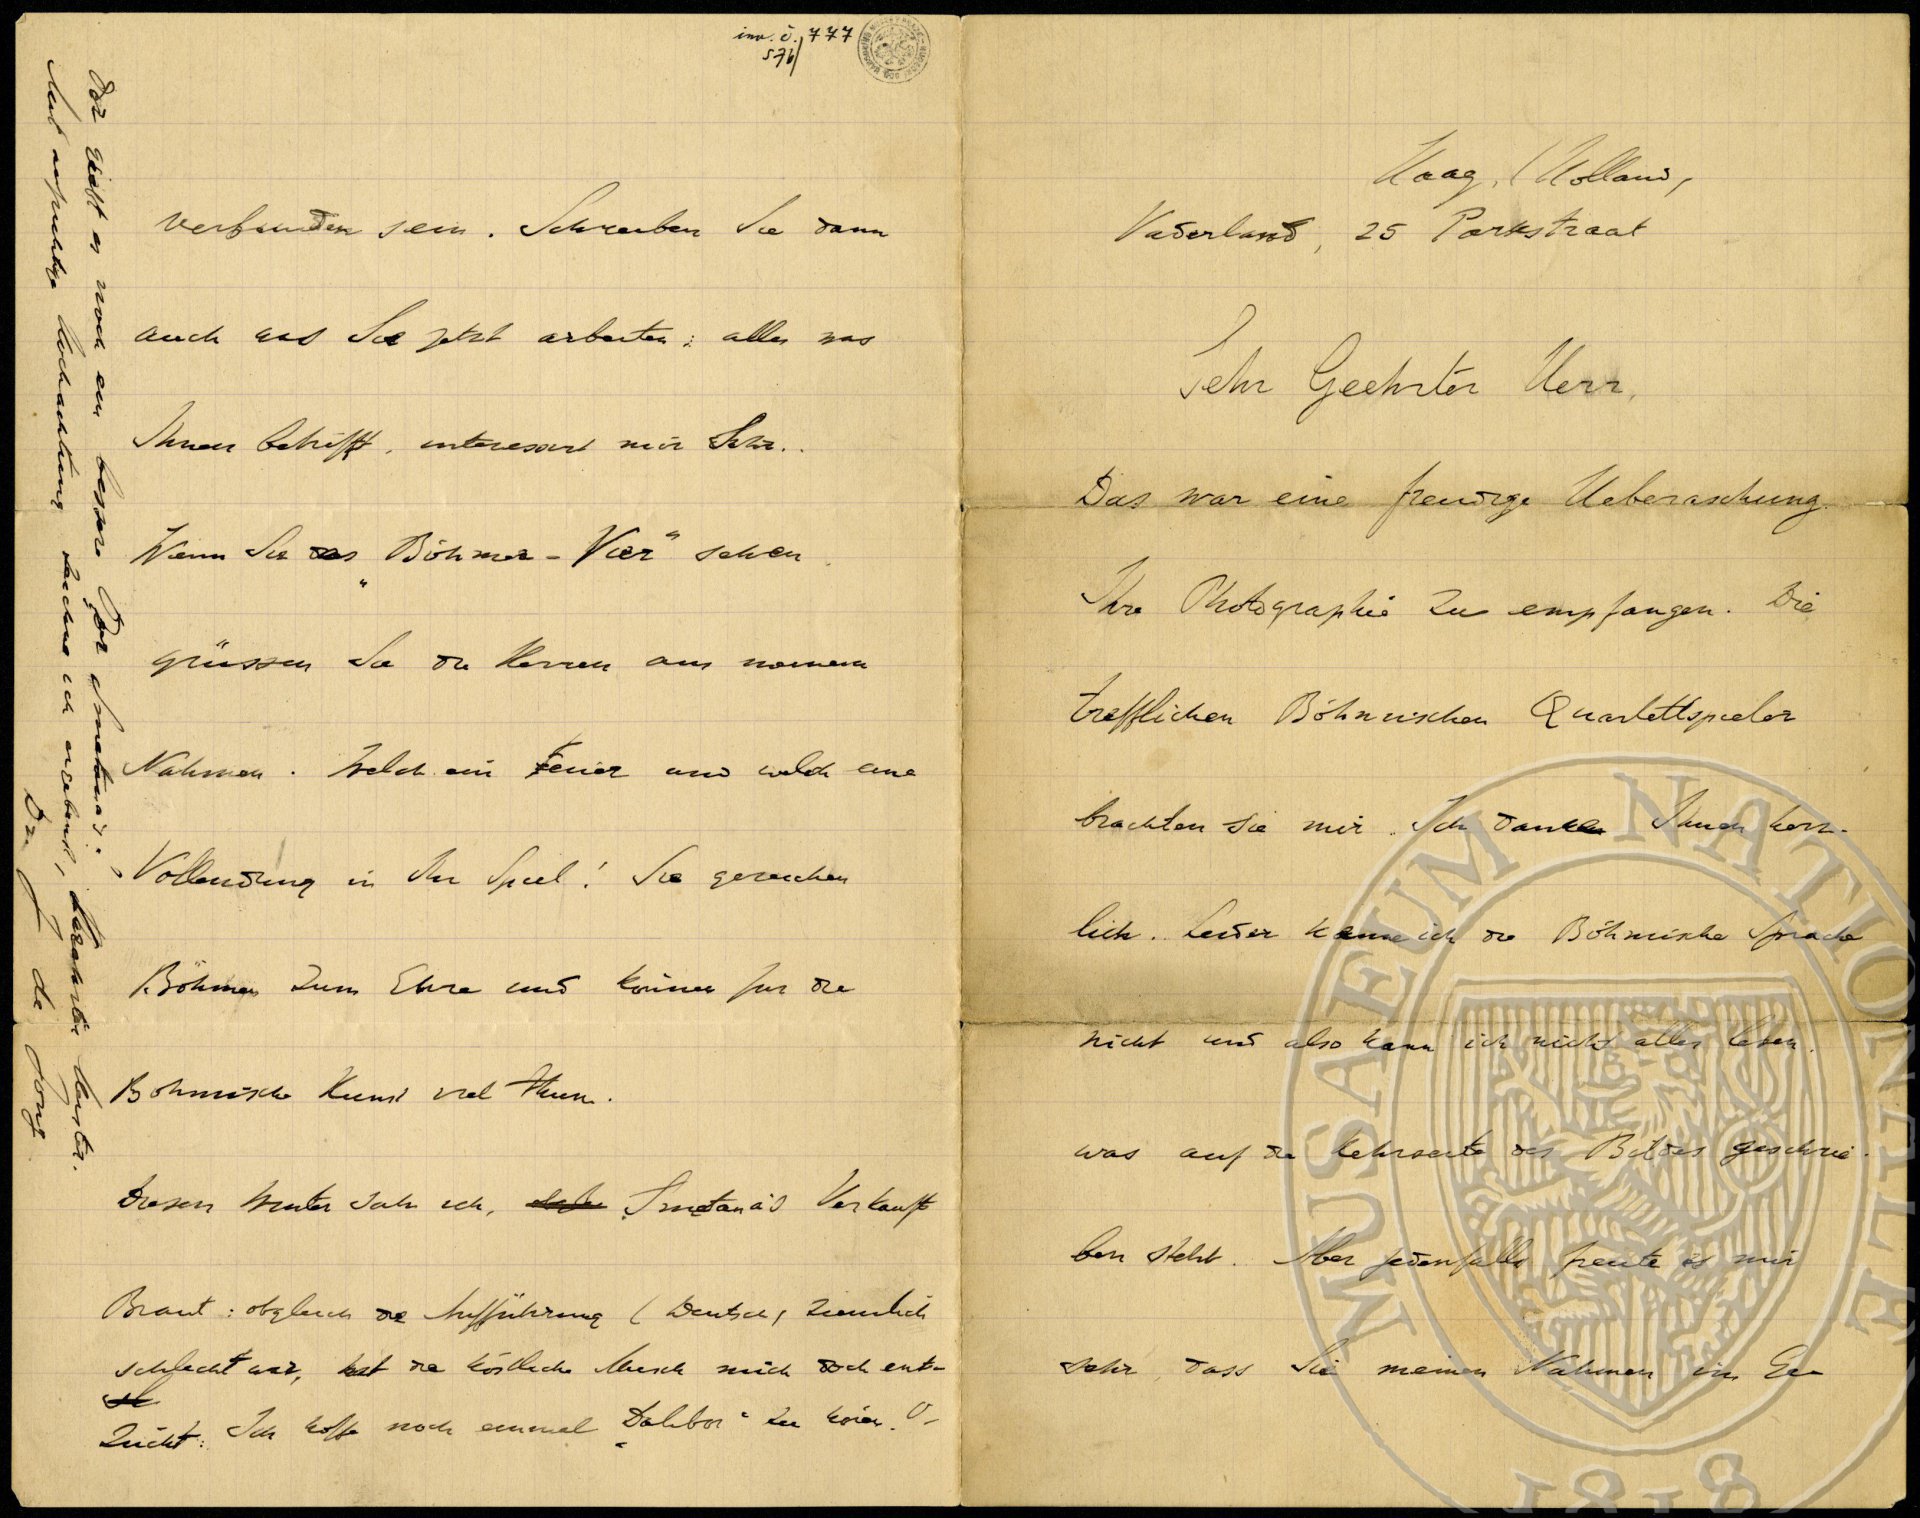 Haag, (Holland,
Vaderland, 25 Parkstraat
Sehr Geehrter Herr,
Das war eine freudige Ueberaschung
Ihre Photographie zu empfangen. Die
trefflichen Böhmischen Quartettspieler
brachten sie mir. Ich danke Ihnen herz-
lich. Leider kenne ich die Böhmische Sprache
nicht und also kann ich nicht alles lesen
was auf die Kehrseite des Bildes geschrie-
ben steht. Aber jedenfalls freute es mir
sehr, dass Sie meinen Nahmen im Ge-
inv. č. 777
S76/
verbunden sein. Schreiben Sie dann
auch was Sie jetzt arbeiten: alles was
Ihnen betrifft, interessirt mir Sehr..
Wenn Sie das „Böhmer-Vier" sehen
grüssen Sie die Herren aus meinem
Nahmen. Welch ein Feuer und welch eine
Vollendung in Ihr Spiel! Sie gereichen
Böhmen zum Ehre und können für die
Bohmische Kunst viel thun.
Diesen Winter sah ich, Smetana's Verkauft
Braut: obgleich die Aufführung (Deutsch) ziemlich
schlecht war, hat die köstliche Musik mich doch ent-
zückt: Ich hoffe noch einmal „Dalibor" zu hören. O-
Der giebt es noch ein bessere Oper Smetana's?
Mit aufrichtige Hochachtung zeichne ich ergebenst, Verehrter Meister.
Dr. J. de Jong
MUSAEUM NATIONALE
1818